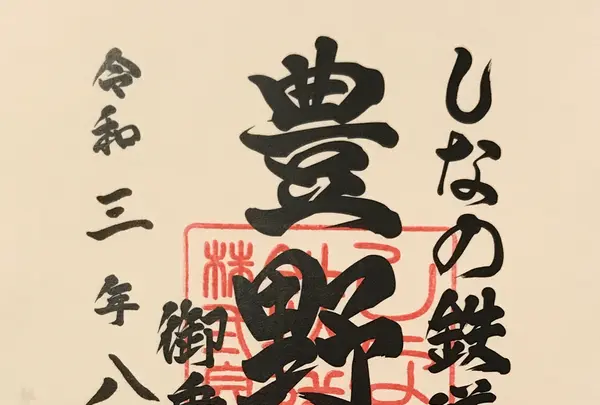 しなの鉄道
豊野
御乗
令和三年八